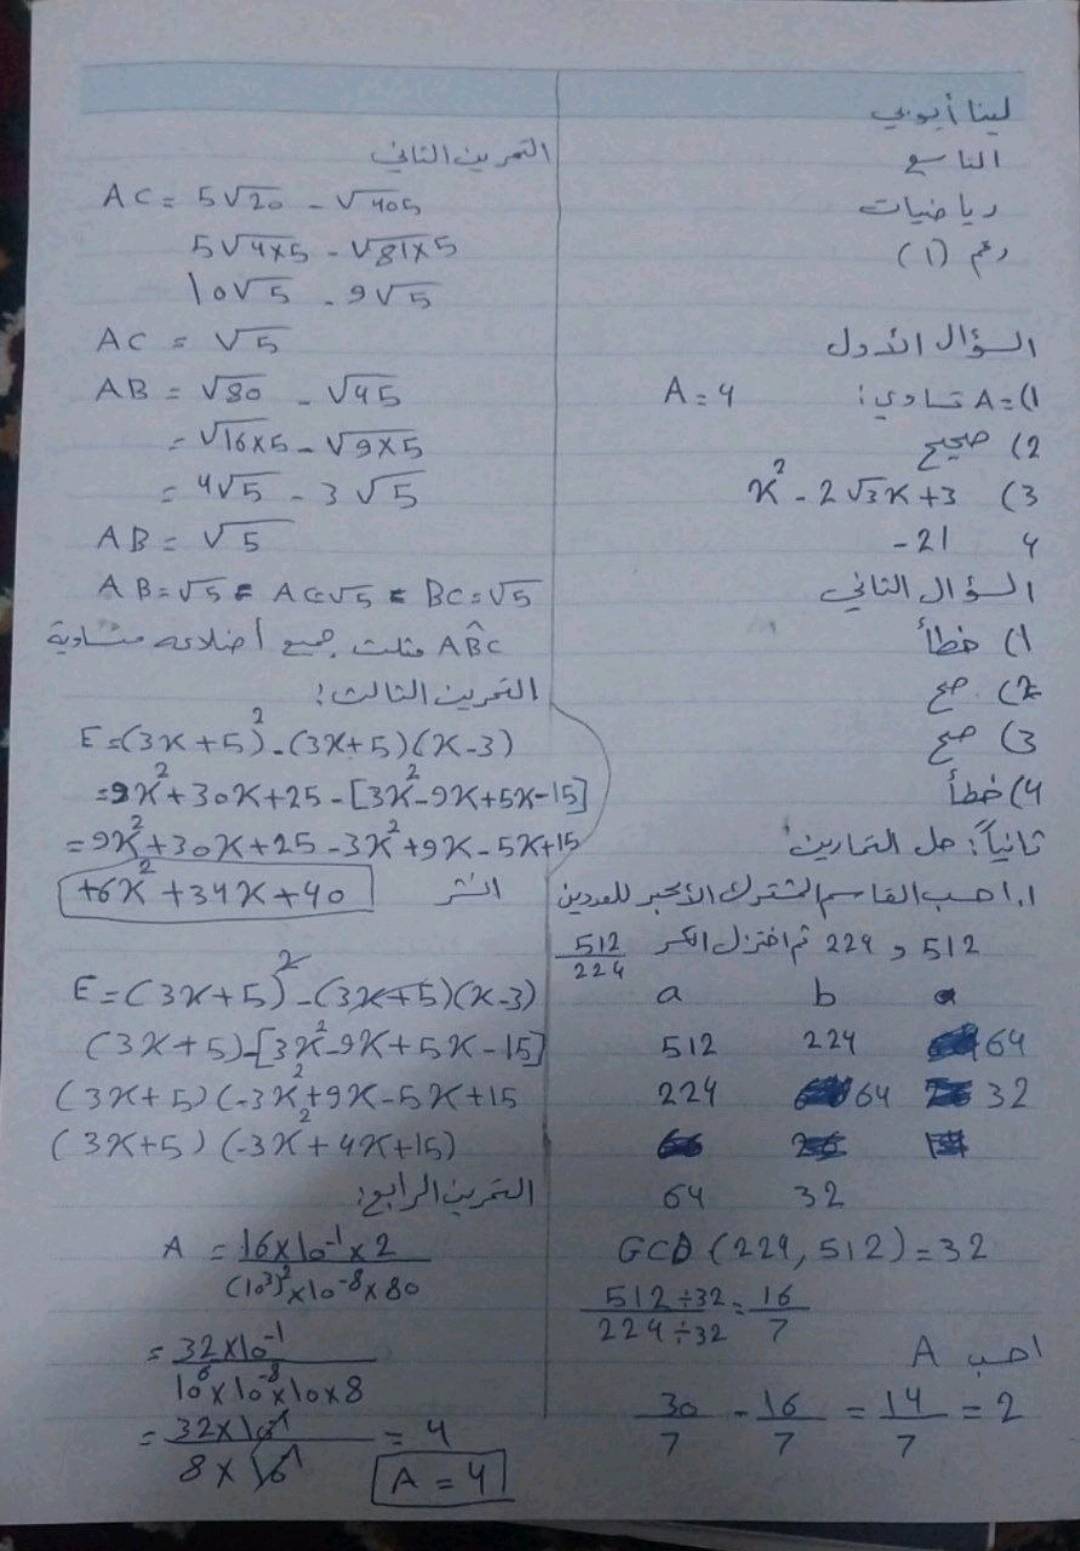 لينا أيوبي
التاسع
رياضيات
رقم (1)
السؤال الأول
1) A= تساوي: A = 4
2) صحيح
3) x² - 2√3x + 3
4 -21
السؤال الثاني
1) خطأ
2) صح
3) صح
4) خطأ
ثانياً: حل التمارين:
1. احسب القاسم المشترك الأكبر للعددين
512 و 224 ثم اختزل الكسر 512/224
a b
512 224 64
224 64 32
64 32
GCD (224, 512) = 32
512÷32 / 224÷32 = 16/7
احسب A
30/7 - 16/7 = 14/7 = 2
التمرين الثاني
AC = 5√20 - √405
5√4×5 - √81×5
10√5 - 9√5
AC = √5
AB = √80 - √45
= √16×5 - √9×5
= 4√5 - 3√5
AB = √5
AB=√5 = AC=√5 = BC=√5
ABC مثلث جميع أضلاعه متساوية
التمرين الثالث:
E=(3x+5)² - (3x+5)(x-3)
=9x²+30x+25-[3x²-9x+5x-15]
=9x²+30x+25-3x²+9x-5x+15
+6x²+34x+40 انشر
E=(3x+5)²-(3x+5)(x-3)
(3x+5)-[3x²-9x+5x-15]
(3x+5)(-3x²+9x-5x+15
(3x+5)(-3x²+4x+15)
التمرين الرابع:
A = 16×10⁻¹×2 / (10³)²×10⁻⁸×80
= 32×10⁻¹ / 10⁶×10⁻⁸×10×8
= 32×10⁻¹ / 8×10⁻¹ = 4
A = 4